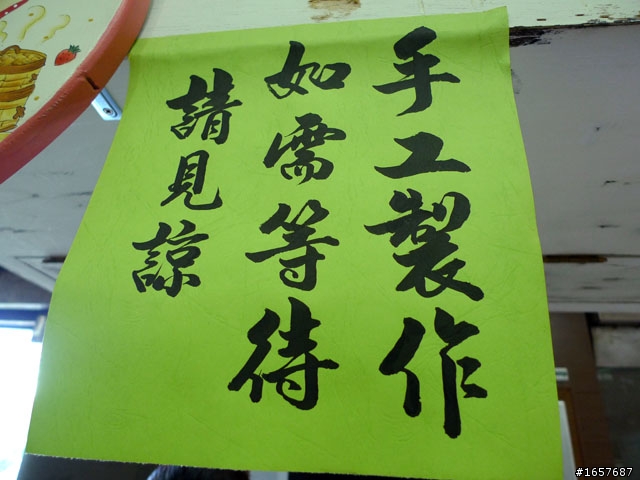 手工製作
如需等待
請見諒
#1657687